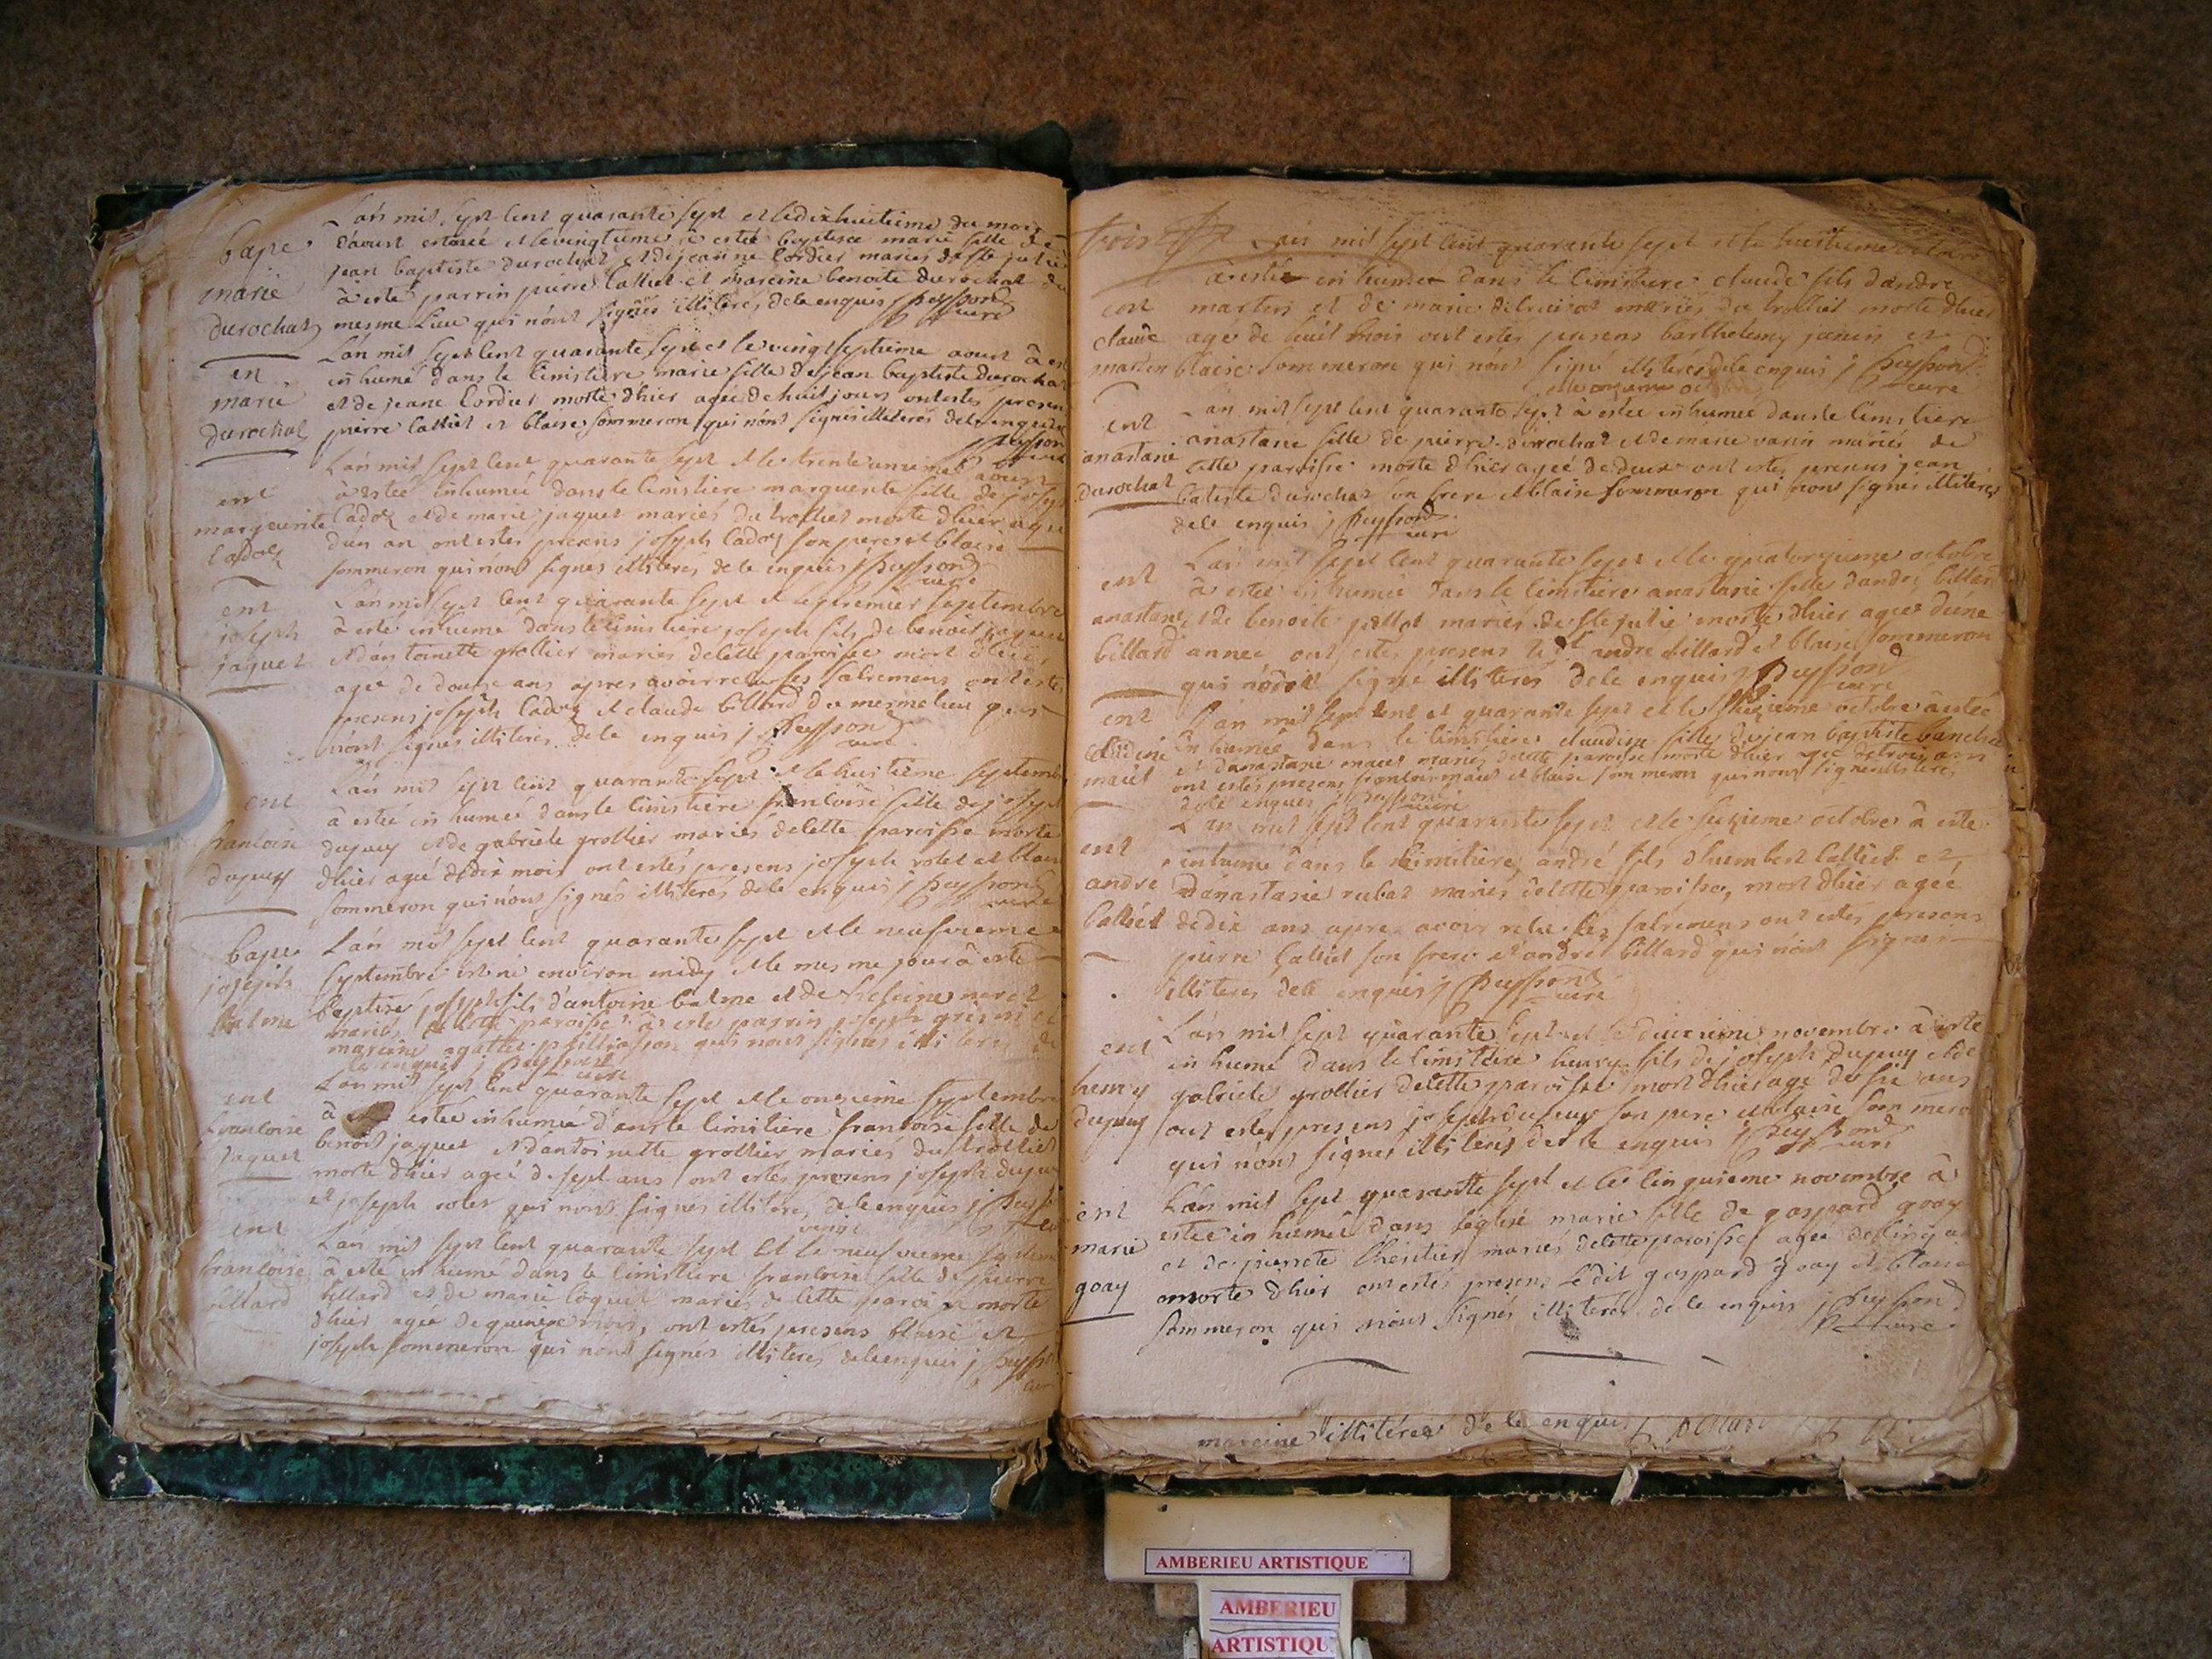 bapt
marie
durochat
L'an mil sept cent quarante sept et le dixhuitieme du mois
d'aoust est née et le vingtieme a estée baptisee marie fille de
jean baptiste durochat et de jeanne Cordier maries de ste julie
à esté parrin pierre Calliet et mareine benoite durochat du
mesme lieu qui n'ont signés illiterés de le enquis j peysson
curé
en
marie
durochat
L'an mil sept cent quarante sept et le vingt septieme aoust à esté
inhumé dans le Cimistiere marie fille de jean baptiste durochat
et de jeane Cordier morte d'hier agée de huit jours ont estés presens
pierre Calliet et blaise sommeron qui n'ont signés illiterés de le enquis
j peysson
curé
ent
marguerite
Cadoz
L'an mil sept cent quarante sept et le trente unieme aoust
à estée inhumée dans le Cimistiere marguerite fille de joseph
Cadoz et de marie jaquet mariés du trolliet morte d'hier agée
d'un an ont estes presens joseph Cadoz son pere et blaise
sommeron qui n'ont signes illiterés de le enquis j peysson
curé
ent
joseph
jaquet
L'an mil sept cent quarante sept et le premier septembre
à esté inhumé dans le Cimistiere joseph fils de benoit jaquet
et d'antoinette grollier mariés de cette paroisse mort d'hier
agé de douze ans apres avoir recu ses sacremens ont estés
presens joseph Cadoz et claude billard du mesme lieu qui
n'ont signés illiteres de le enquis j peysson
curé
ent
francoise
dupuy
L'an mil sept cent quarante sept et le huitieme septembre
à estée inhumée dans le Cimistiere francoise fille de joseph
dupuy et de gabriele grollier mariés de cette paroisse morte
d'hier agée de dix mois ont estés presens joseph rolet et blaise
sommeron qui n'ont signés illiterés de le enquis j peysson
curé
bapt
joseph
balme
L'an mil sept cent quarante sept et le neufvieme
septembre est né environ midy et le mesme jour à esté
baptisé joseph fils d'antoine balme et de
mariés de cette paroisse à esté parrin joseph
mareine agathe qui n'ont signés illiterés de
le enquis j peysson
curé
ent
francoise
jaquet
L'an mil sept cent quarante sept et le onzieme septembre
à estée inhumée dans le Cimitiere francoise fille de
benoit jaquet et d'antoinette grollier mariés du trolliet
morte d'hier agée de sept ans ont estés presens joseph dupuy
et joseph rolet qui n'ont signés illiterés de le enquis j peysson
ent
francoise
billard
vingt
L'an mil sept cent quarante sept et le neufvieme septembre
à esté inhumé dans le Cimistiere francoise fille de pierre
billard et de marie mariés de cette paroisse morte
d'hier agée de quinze mois, ont estés presens blaise et
joseph sommeron qui n'ont signés illiterés de le enquis j peysson
curé
L'an mil sept cent quarante sept et le huitieme
ent
claude
martin
à estée inhumée dans le Cimistiere claude fils d'andre
martin et de marie mariés du trolliet morte d'hier
agé de huit mois ont estes presens barthelemy et
blaise sommeron qui n'ont signé illiterés de le enquis j peysson
curé
ent
anastasie
durochat
et le onzieme
L'an mil sept cent quarante sept à estee inhumée dans le Cimistiere
anastasie fille de pierre durochat et de marie varin mariés de
cette paroisse morte d'hier agée de deux ont estes presens jean
batiste durochat son frere et blaise sommeron qui n'ont signés illiterés
de le enquis j peysson
curé
ent
anastasie
billard
L'an mil sept cent quarante sept et le quatorzieme octobre
à estée inhumée dans le Cimistiere anastasie fille d'andré billard
et de benoite mariés de ste julie morte d'hier agée d'une
année ont estes presens andre billard et blaise sommeron
qui n'ont signé illiterés de le enquis j peysson
curé
ent
claudine
L'an mil sept cent et quarante sept et le seizieme octobre à estée
inhumée dans le Cimistiere claudine fille de jean baptiste
et d'anastasie mariés de cette paroisse morte d'hier agée de trois ans
ont estés presens et blaise sommeron qui n'ont signé illiterés
de le enquis j peysson
curé
ent
andre
Calliet
L'an mil sept cent quarante sept et le seizieme octobre à esté
inhumé dans le Cimitiere andré fils d'humbert Calliet et
d'anastasie rubat mariés de cette paroisse, mort d'hier agée
de dix ans apres avoir recu ses sacremens ont estés presens
pierre Calliet son frere et andre billard qui n'ont signes
illiteres de le enquis j peysson
curé
ent
henry
dupuy
L'an mil sept quarante sept et le deuxieme novembre à esté
inhumé dans le Cimistiere henry fils de joseph dupuy et de
gabriele grollier de cette paroisse mort d'hier agé de six ans
ont estes presens joseph dupuy son pere et blaise sommeron
qui n'ont signes illiterés de le enquis j peysson
curé
ent
marie
goay
L'an mil sept quarante sept et le cinquieme novembre à
estée inhumée dans l'eglise marie fille de gaspard goay
et de pierrete mariés de cette paroisse agée de cinq ans
morte d'hier ont estés presens ledit gaspard goay et blaise
sommeron qui n'ont signés illiterés de le enquis j peysson
curé
mareine illitéres de le enquis
AMBERIEU ARTISTIQUE
AMBERIEU
ARTISTIQU